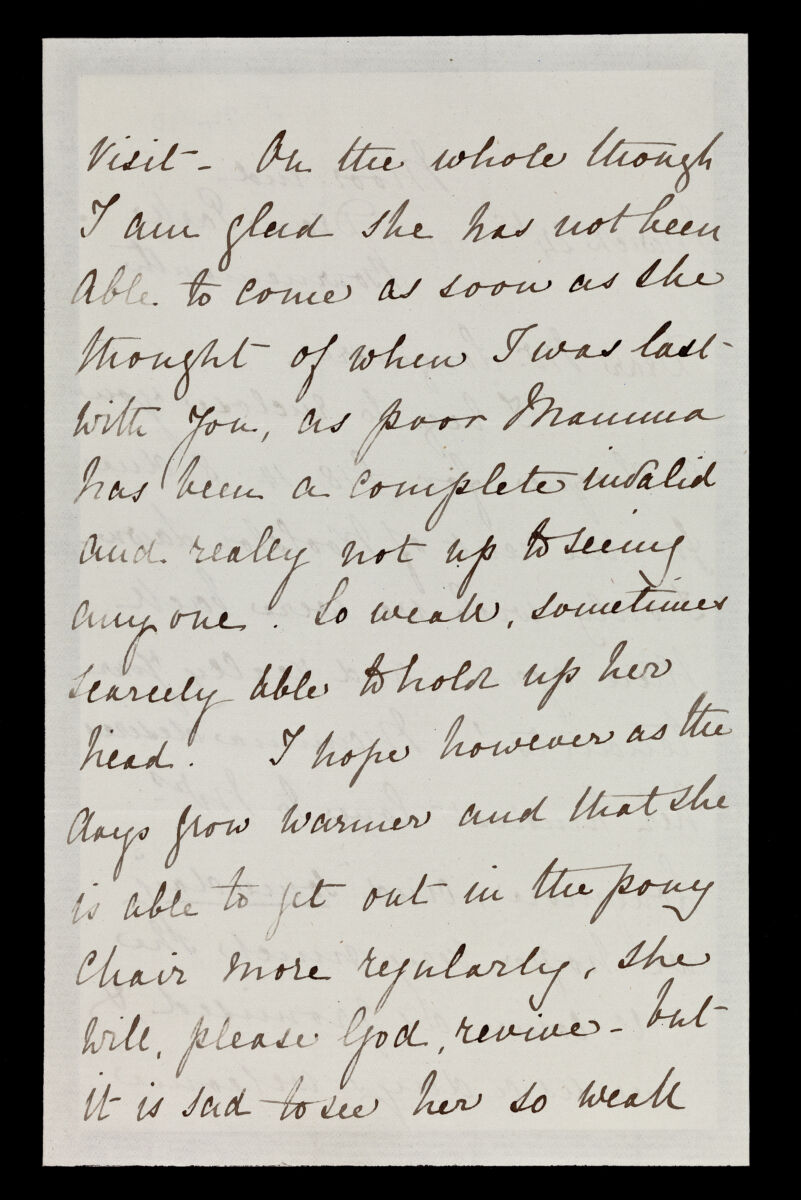 Visit - On the whole though
I am glad she has not been
able to come as soon as she
thought of when I was last
with you, as poor Mamma
has been a complete invalid
and really not up to seeing
any one. So weak, sometimes
scarcely able to hold up her
head. I hope however as the
days grow warmer and that she
is able to get out in the pony
chair more regularly, she
will, please God, revive - but
it is sad to see her so weak